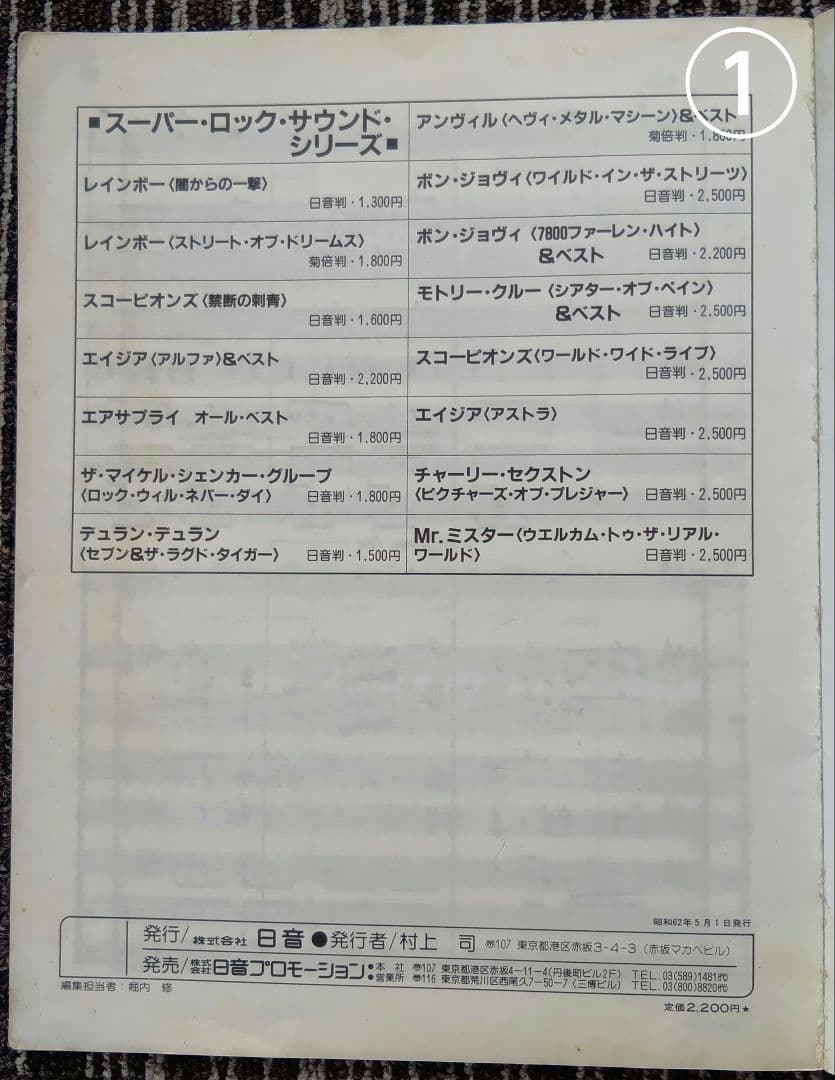 ①
■スーパー・ロック・サウンド・
シリーズ■
レインボー〈闇からの一撃〉
日音判・1,300円
レインボー〈ストリート・オブ・ドリームス〉
菊倍判・1,800円
スコーピオンズ〈禁断の刺青〉
日音判・1,600円
エイジア〈アルファ〉&ベスト
日音判・2,200円
エアサプライ オール・ベスト
日音判・1,800円
ザ・マイケル・シェンカー・グループ
〈ロック・ウィル・ネバー・ダイ〉 日音判・1,800円
デュラン・デュラン
〈セブン&ザ・ラグド・タイガー〉 日音判・1,500円
アンヴィル〈ヘヴィ・メタル・マシーン〉&ベスト
菊倍判・1,800円
ボン・ジョヴィ〈ワイルド・イン・ザ・ストリーツ〉
日音判・2,500円
ボン・ジョヴィ〈7800ファーレン・ハイト〉
&ベスト 日音判・2,200円
モトリー・クルー〈シアター・オブ・ペイン〉
&ベスト 日音判・2,500円
スコーピオンズ〈ワールド・ワイド・ライブ〉
日音判・2,500円
エイジア〈アストラ〉
日音判・2,500円
チャーリー・セクストン
〈ピクチャーズ・オブ・プレジャー〉 日音判・2,500円
Mr.ミスター〈ウエルカム・トゥ・ザ・リアル・
ワールド〉 日音判・2,500円
昭和62年5月1日発行
発行/株式会社 日音●発行者/村上 司 〠107 東京都港区赤坂3-4-3(赤坂マカベビル)
発売/株式会社日音プロモーション●本社 〠107 東京都港区赤坂4-11-4(丹後町ビル2F) TEL.03(589)1481㈹
●営業所 〠116 東京都荒川区西尾久7-50-7(三博ビル) TEL.03(800)8820㈹
編集担当者:堀内 修
定価2,200円★